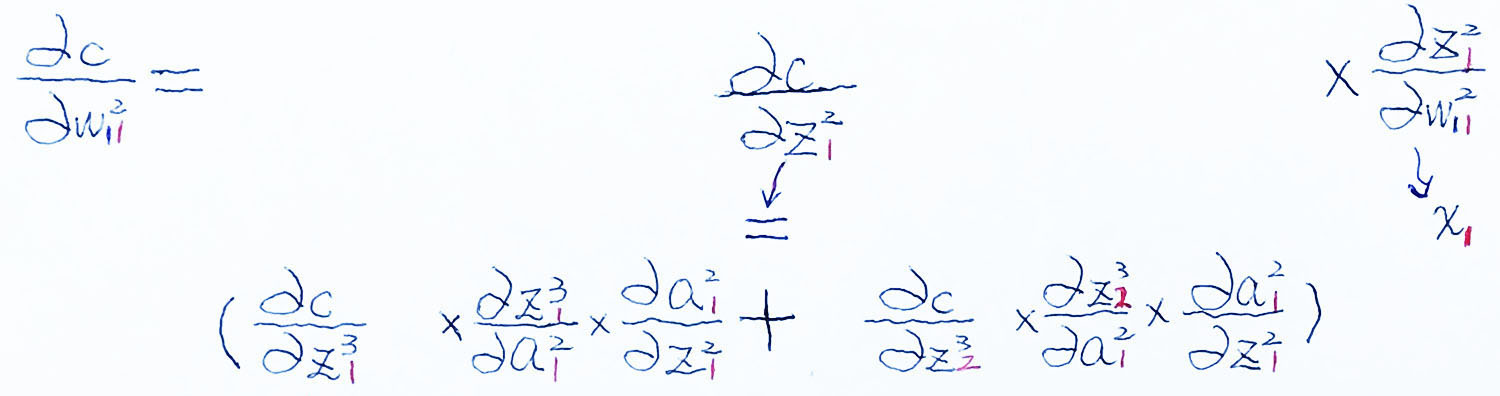 ∂c/∂w₁₁² = ∂c/∂z₁² × ∂z₁²/∂w₁₁²
↓ ↘
= x₁
( ∂c/∂z₁³ × ∂z₁³/∂a₁² × ∂a₁²/∂z₁² + ∂c/∂z₂³ × ∂z₂³/∂a₁² × ∂a₁²/∂z₁² )